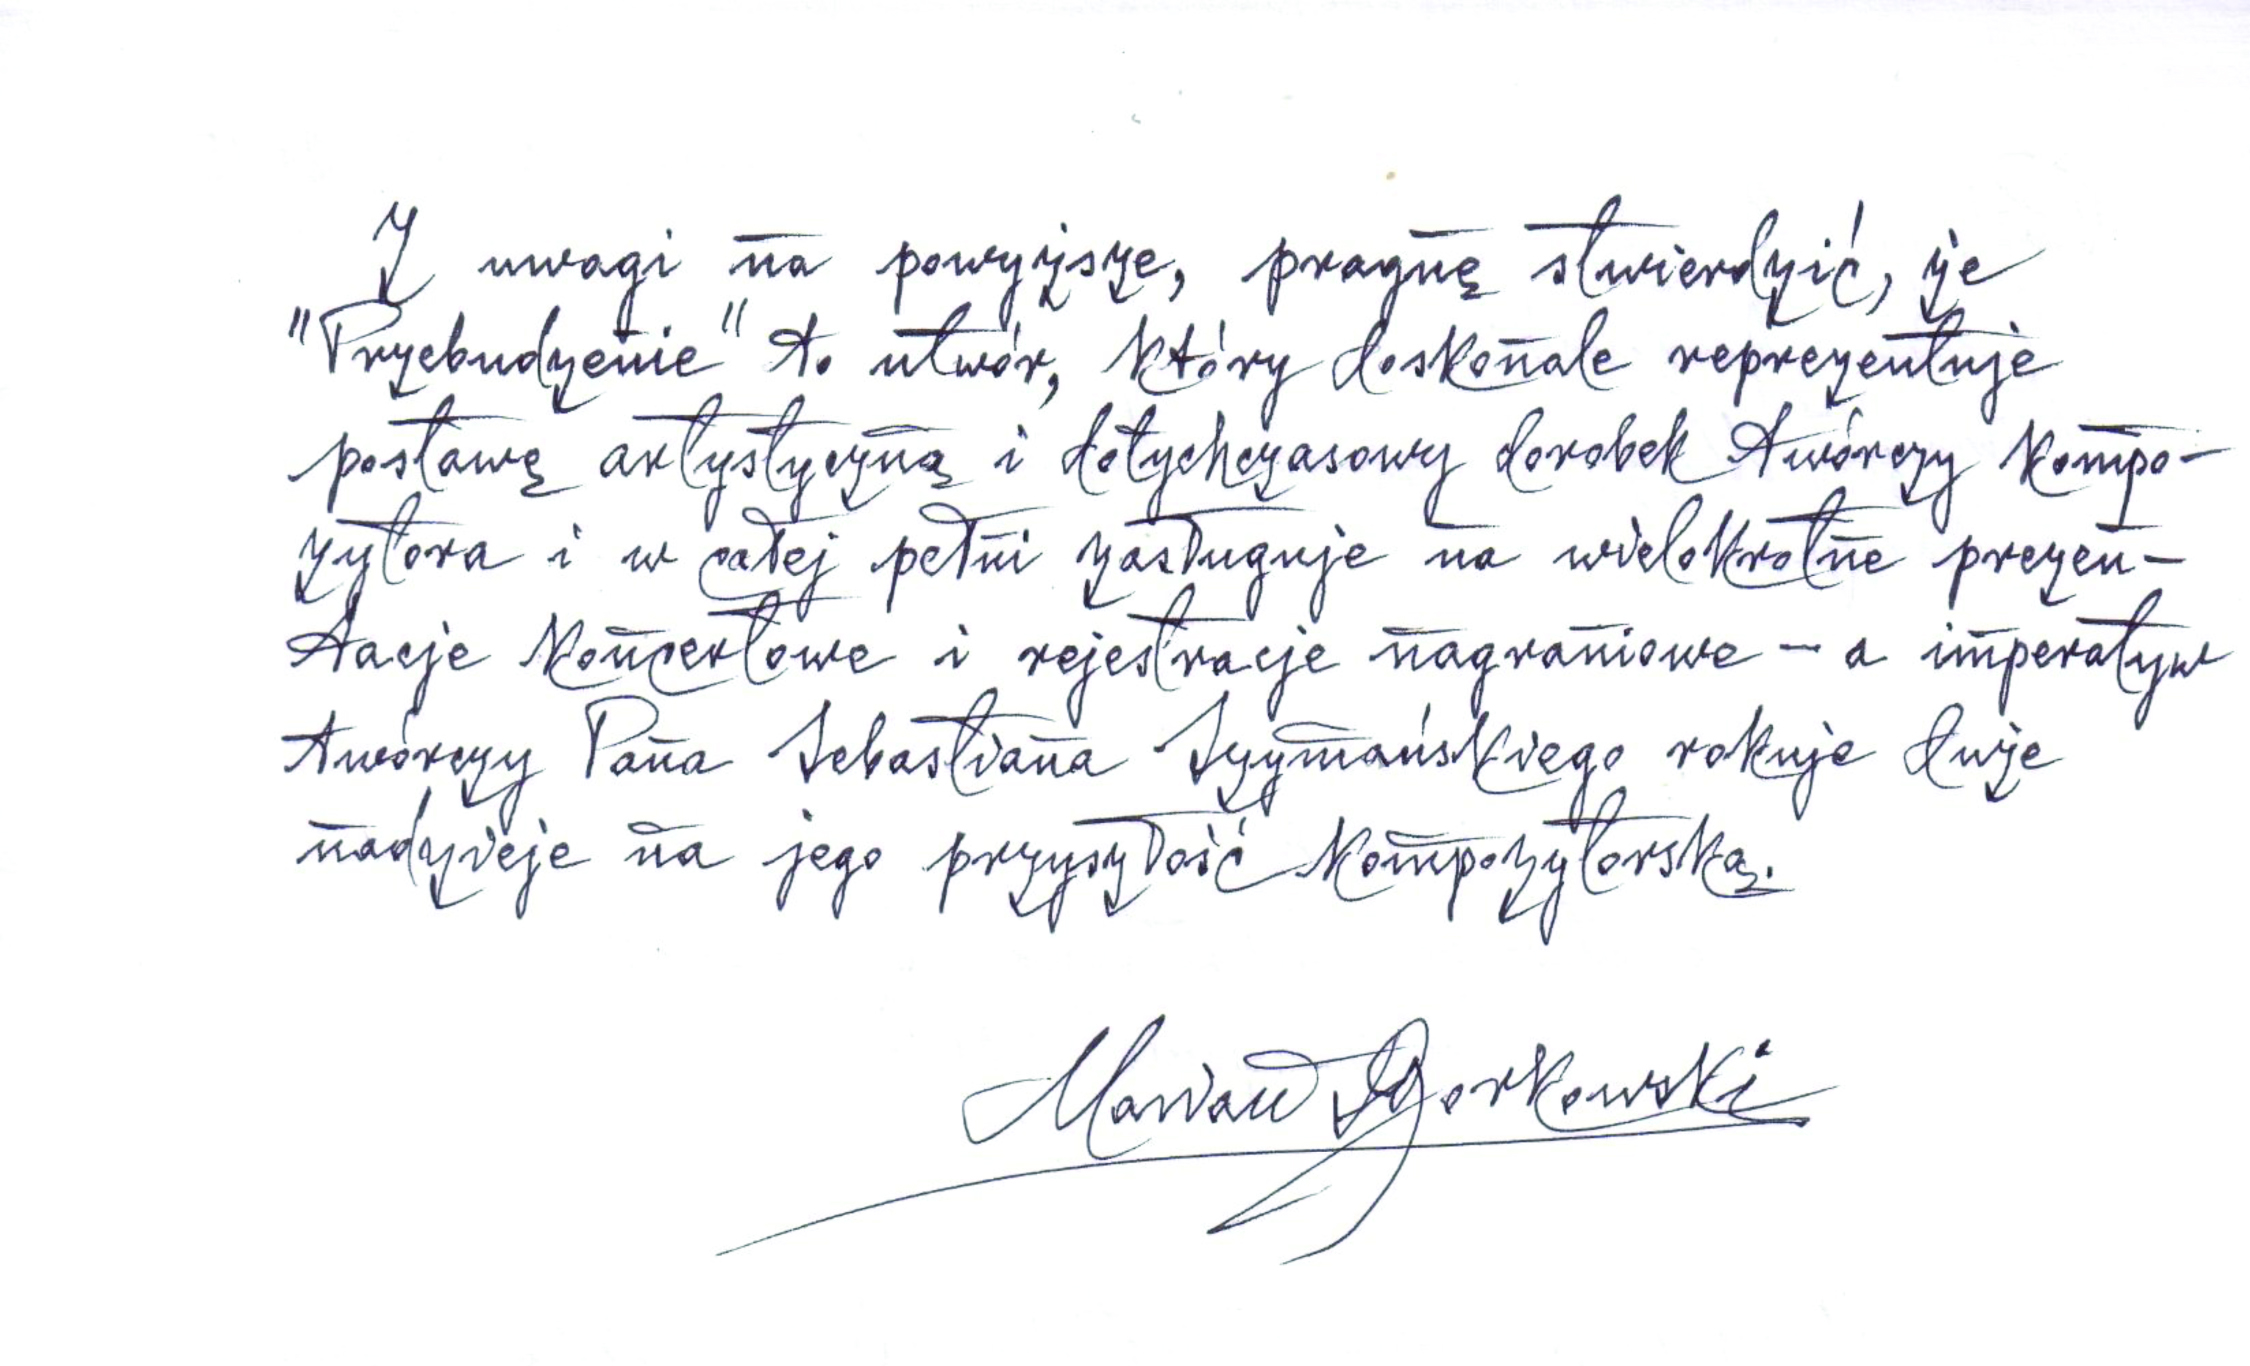 Z uwagi na powyższe, pragnę stwierdzić, że
"Przebudzenie" to utwór, który doskonale reprezentuje
postawę artystyczną i dotychczasowy dorobek twórczy kompo-
zytora i w całej pełni zasługuje na wielokrotne prezen-
tacje koncertowe i rejestracje nagraniowe – a imperatyw
twórczy Pana Sebastiana Szymańskiego rokuje duże
nadzieje na jego przyszłość kompozytorską.
Marian Borkowski